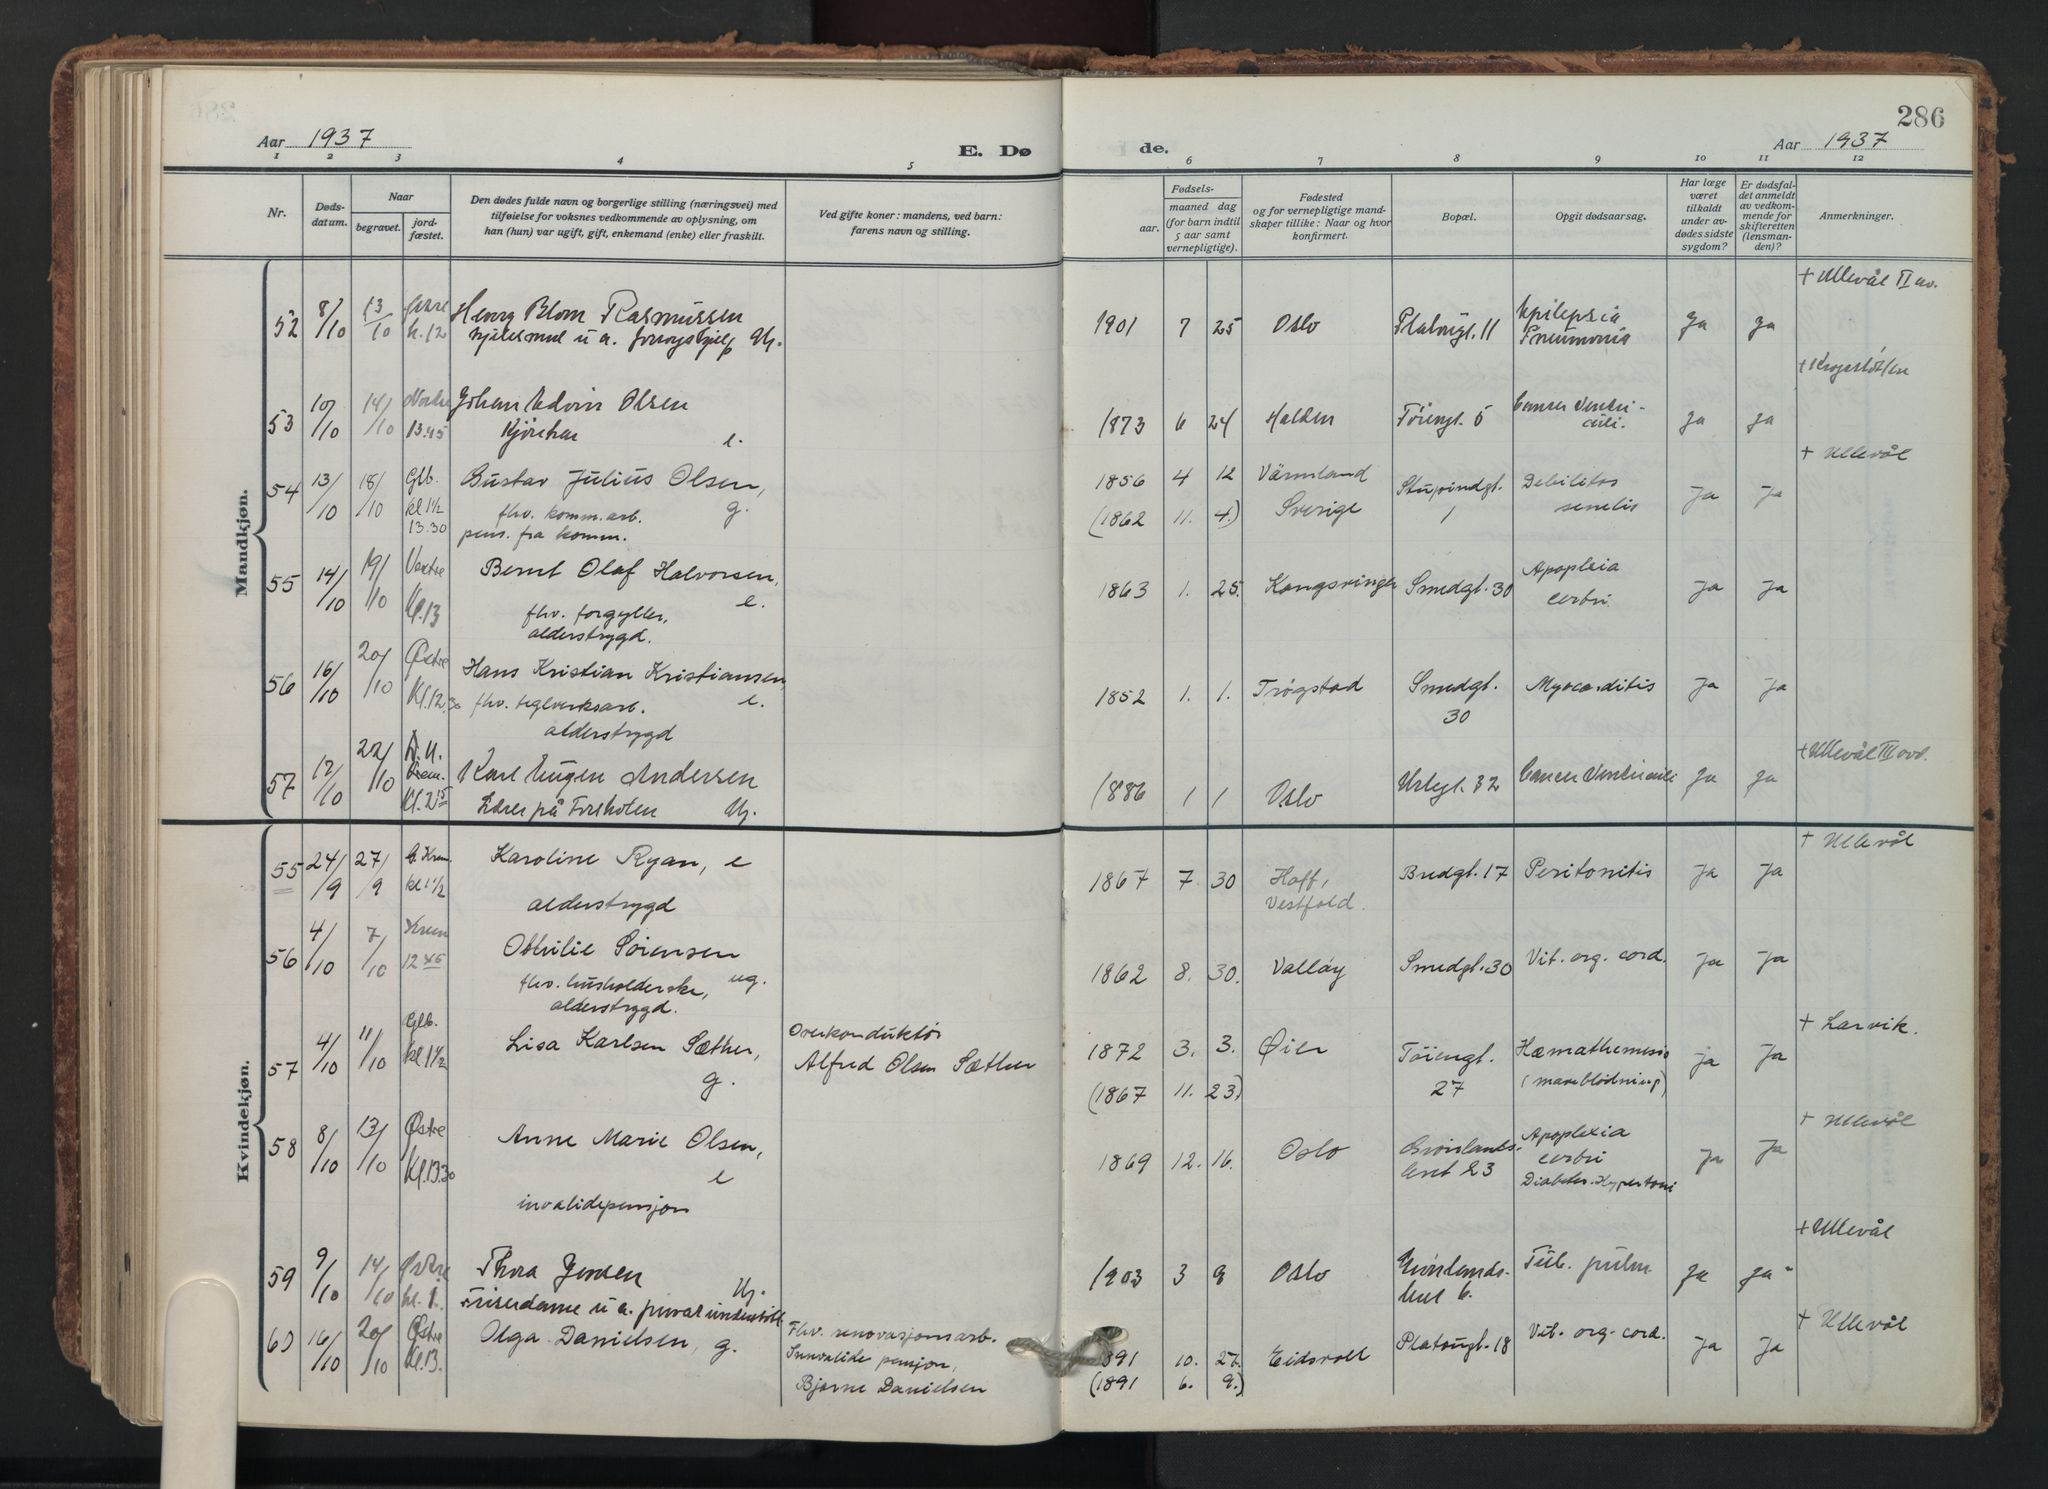 286
Aar 1937
E. Dø
de.
Aar 1937
1 2 3 4 5 6 7 8 9 10 11 12
Nr.
Døds-
datum.
Naar
begravet.
jord-
fæstet.
Den dødes fulde navn og borgerlige stilling (næringsvei) med
tilføielse for voksnes vedkommende av oplysning, om
han (hun) var ugift, gift, enkemand (enke) eller fraskilt.
Ved gifte koner: mandens, ved barn:
farens navn og stilling.
Fødsels-
aar.
maaned dag
(for barn indtil
5 aar samt
vernepligtige).
Fødested
og for vernepligtige mand-
skaper tillike: Naar og hvor
konfirmert.
Bopæl.
Opgit dødsaarsag.
Har læge
været
tilkaldt
under av-
dødes sidste
sygdom?
Er dødsfal-
det anmeldt
av vedkom-
mende for
skifteretten
(lensman-
den)?
Anmerkninger.
Mandkjøn.
+ Ullevål II av.
52 8/10 13/10 kl. 12 Georg Blom Rasmussen
Ug.
1901 7 25 Oslo Platougt. 11 Epilepsia
Pneumonia Ja Ja
53 10/10 14/10 13.45 Johan Edvin Olsen
e.
1873 6 24 Halden Tøiengt. 5 Cancer Ventri-
culi. Ja Ja
+ Ullevål
54 13/10 18/10 Glb.
kl 1 1/2
13.30 Gustav Julius Olsen,
g.
fhv. komm.arb.
pens. fra komm.
1856 4 12 Värmland
Sverige Stupindgt.
1 Debilitas
senilis Ja Ja
(1862 11. 4.)
55 14/10 19/10 Vestre
Kl. 13 Bernt Olaf Halvorsen,
e.
fhv. forgyller,
alderstrygd.
1863 1. 25. Kongsvinger Smedgt. 30 Apoplexia
cerbri Ja Ja
56 16/10 20/10 Østre
Kl. 12.30 Hans Kristian Kristiansen,
fhv. teglverksarb. e.
alderstrygd
1852 1. 1. Trøgstad Smedgt.
30 Myocarditis Ja Ja
+ Ullevål III avd.
57 17/10 22/10 Krem.
Kl. 2 15 Karl Eugen Andersen
Ug.
1886 1 1 Oslo Urtegt. 32 Cancer Ventriculi Ja Ja
Kvindekjøn.
+ Ullevål
55 24/9 27/9 G. Krem.
kl 1 1/2 Karoline Ryan, e
alderstrygd
1867 7 30 Hoff,
Vestfold. Bredgt. 17 Peritonitis Ja Ja
56 4/10 7/10 Krem
12 45 Othilie Sørensen
fhv. husholderske, ug.
alderstrygd.
1862 8. 30. Valløy Smedgt. 30 Vit. org. cord. Ja Ja
+ Larvik.
57 4/10 11/10 Glb.
kl 1 1/2 Lisa Karlsen Sæther,
g.
Overkonduktør
Alfred Olsen Sæther
1872 3. 3. Øier Tøiengt.
27 Hæmathemesis
(maveblödning) Ja Ja
(1867 11. 23.)
+ Ullevål
58 8/10 13/10 Østre
Kl. 13.30 Anne Marie Olsen,
e
invalidepensjon
1869 12. 16. Oslo Grønlands-
leret 23 Apoplexia
cerbri
Diabetes. Hypertoni Ja Ja
+ Ullevål
59 9/10 14/10 Østre
kl. 1. Thora Jensen
Ug.
1903 3 9 Oslo Grønlands-
leret 6. Tub. pulm Ja Ja
+ Ullevål
60 16/10 20/10 Østre
Kl. 13. Olga Danielsen, g.
Fhv. renovasjonsarb.
Innvalide pensjon,
Bjarne Danielsen
1891 10. 27. Eidsvoll Platougt. 18 Vit. org. cord. Ja Ja
(1891 6. 9.)